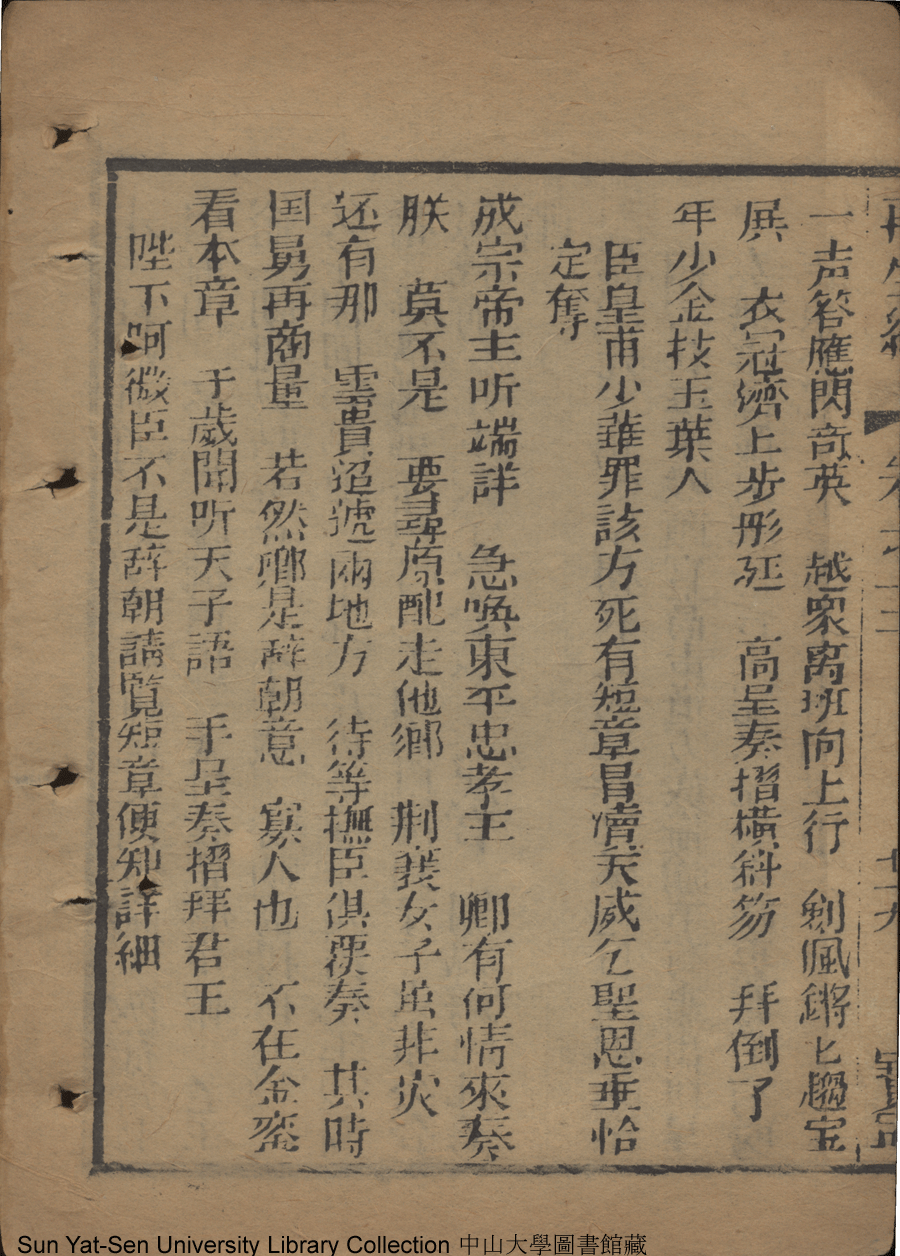 再生緣 卷之十三 十九 寶
一声答應閃竒英 越衆离班向上行 劍佩鏘匕趨宝
展 衣冠濟上步彤廷 高呈奏摺横斜笏 拜倒了
年少金枝玉葉人
臣皇甫少華罪該万死有短章冒凟天威乞聖恩垂恰
定奪
成宗帝主听端詳 急唤東平忠孝王 卿有何情來奏
朕 莫不是 要尋原配走他鄉 荆襄女子虽非災
还有那 雲貴迢號兩地方 待等撫臣俱覆奏 其時
国舅再商量 若然鄉是辞朝意 寡人也 不在金鑾
看本章 千歲聞听天子語 手呈奏摺拜君王
陛下呵微臣不是辞朝請覧短章便知詳細
Sun Yat-Sen University Library Collection 中山大學圖書館藏